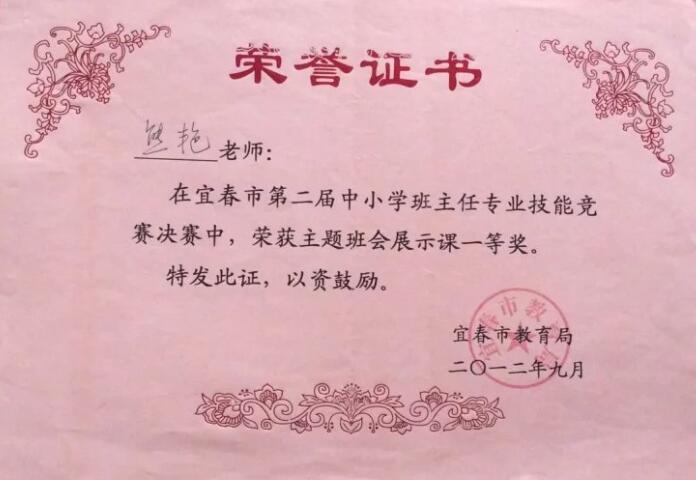 荣誉证书
熊艳老师：
在宜春市第二届中小学班主任专业技能竞
赛决赛中，荣获主题班会展示课一等奖。
特发此证，以资鼓励。
宜春市教育局
二〇一二年九月
宜春市教育局